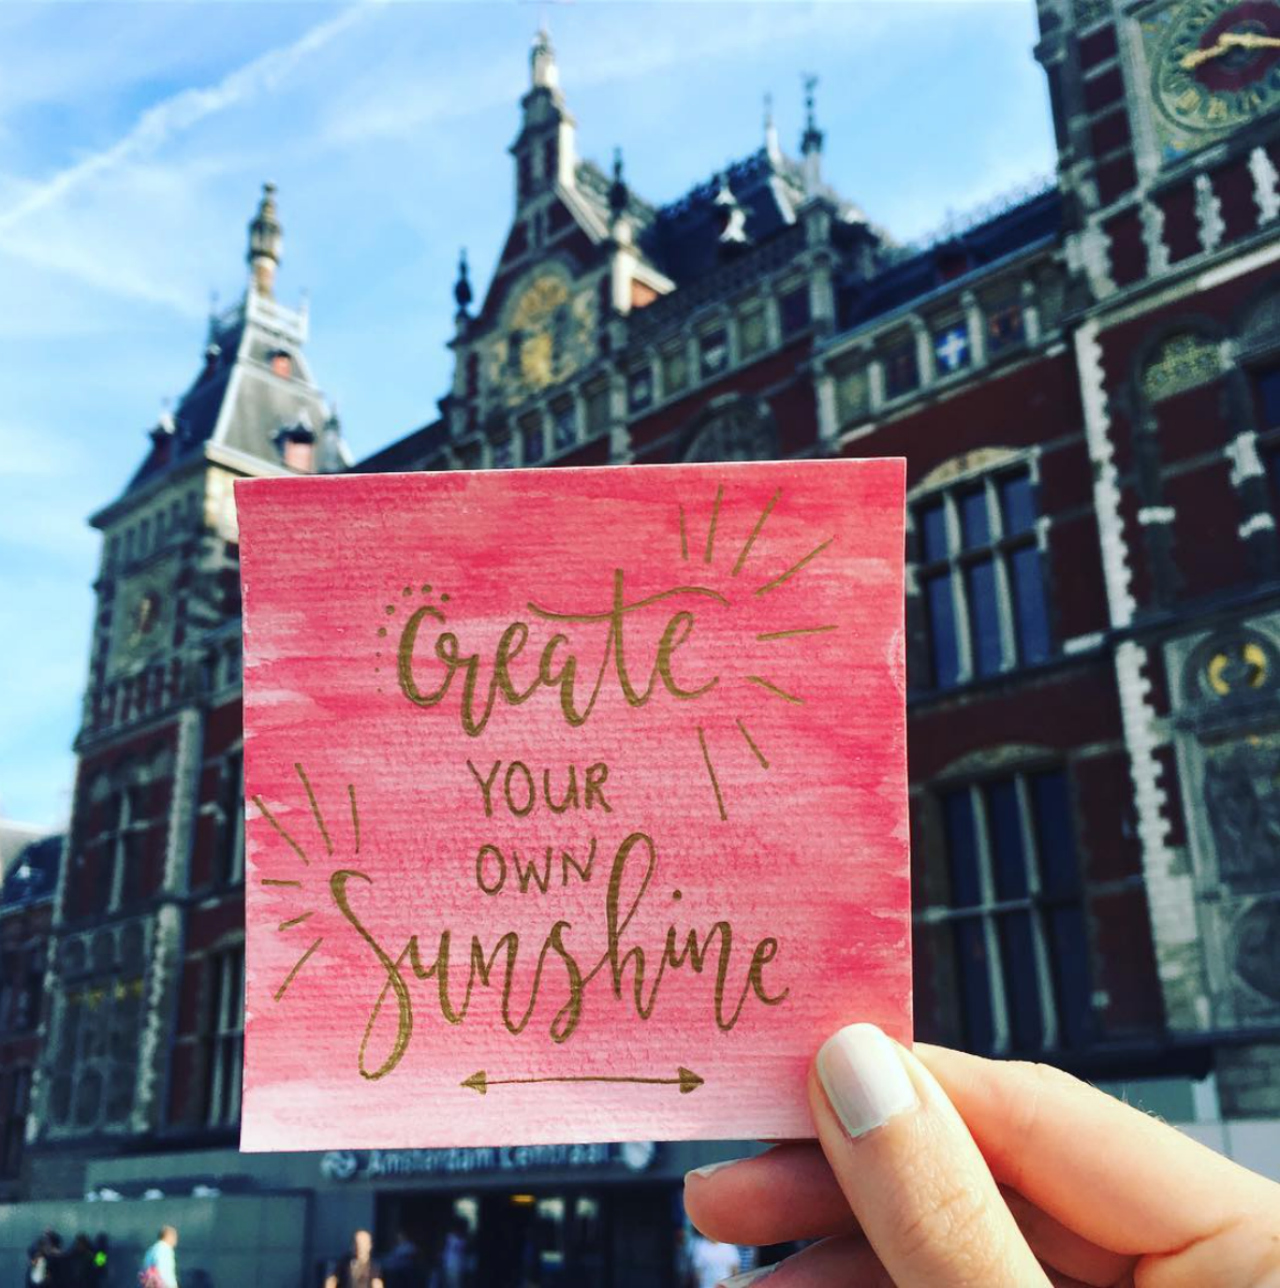 Create
YOUR
OWN
Sunshine
Amsterdam Centraal